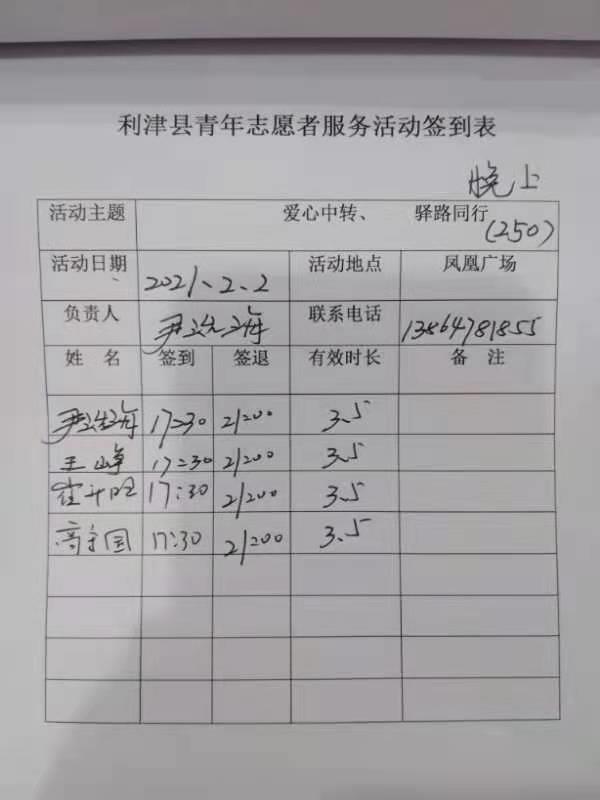 利津县青年志愿者服务活动签到表
晚上
活动主题 爱心中转、 驿路同行
(250)
活动日期 2021、2、2 活动地点 凤凰广场
负责人 尹海 联系电话 13864781855
姓 名 签到 签退 有效时长 备 注
尹海 17:30 21:00 3.5
王峥 17:30 21:00 3.5
崔旺 17:30 21:00 3.5
高国 17:30 21:00 3.5